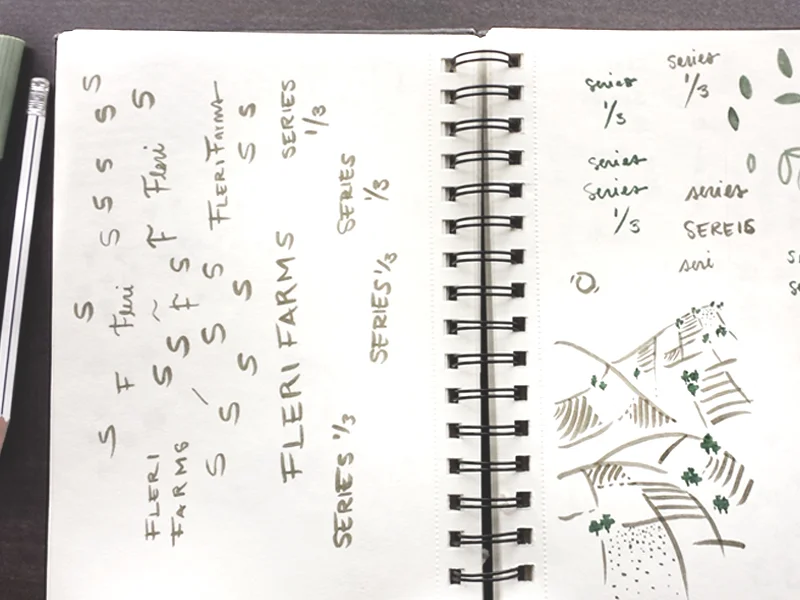 S S
S S S S S S
F Fleri S
FLERI S F Fleri
FARMS S F S
S S S FLERI FARMS
S S S S S
FLERI FARMS
SERIES
1/3
SERIES 1/3
SERIES
1/3
SERIES 1/3
series
1/3
series
1/3
series
series
1/3
series
SEREIS
seri